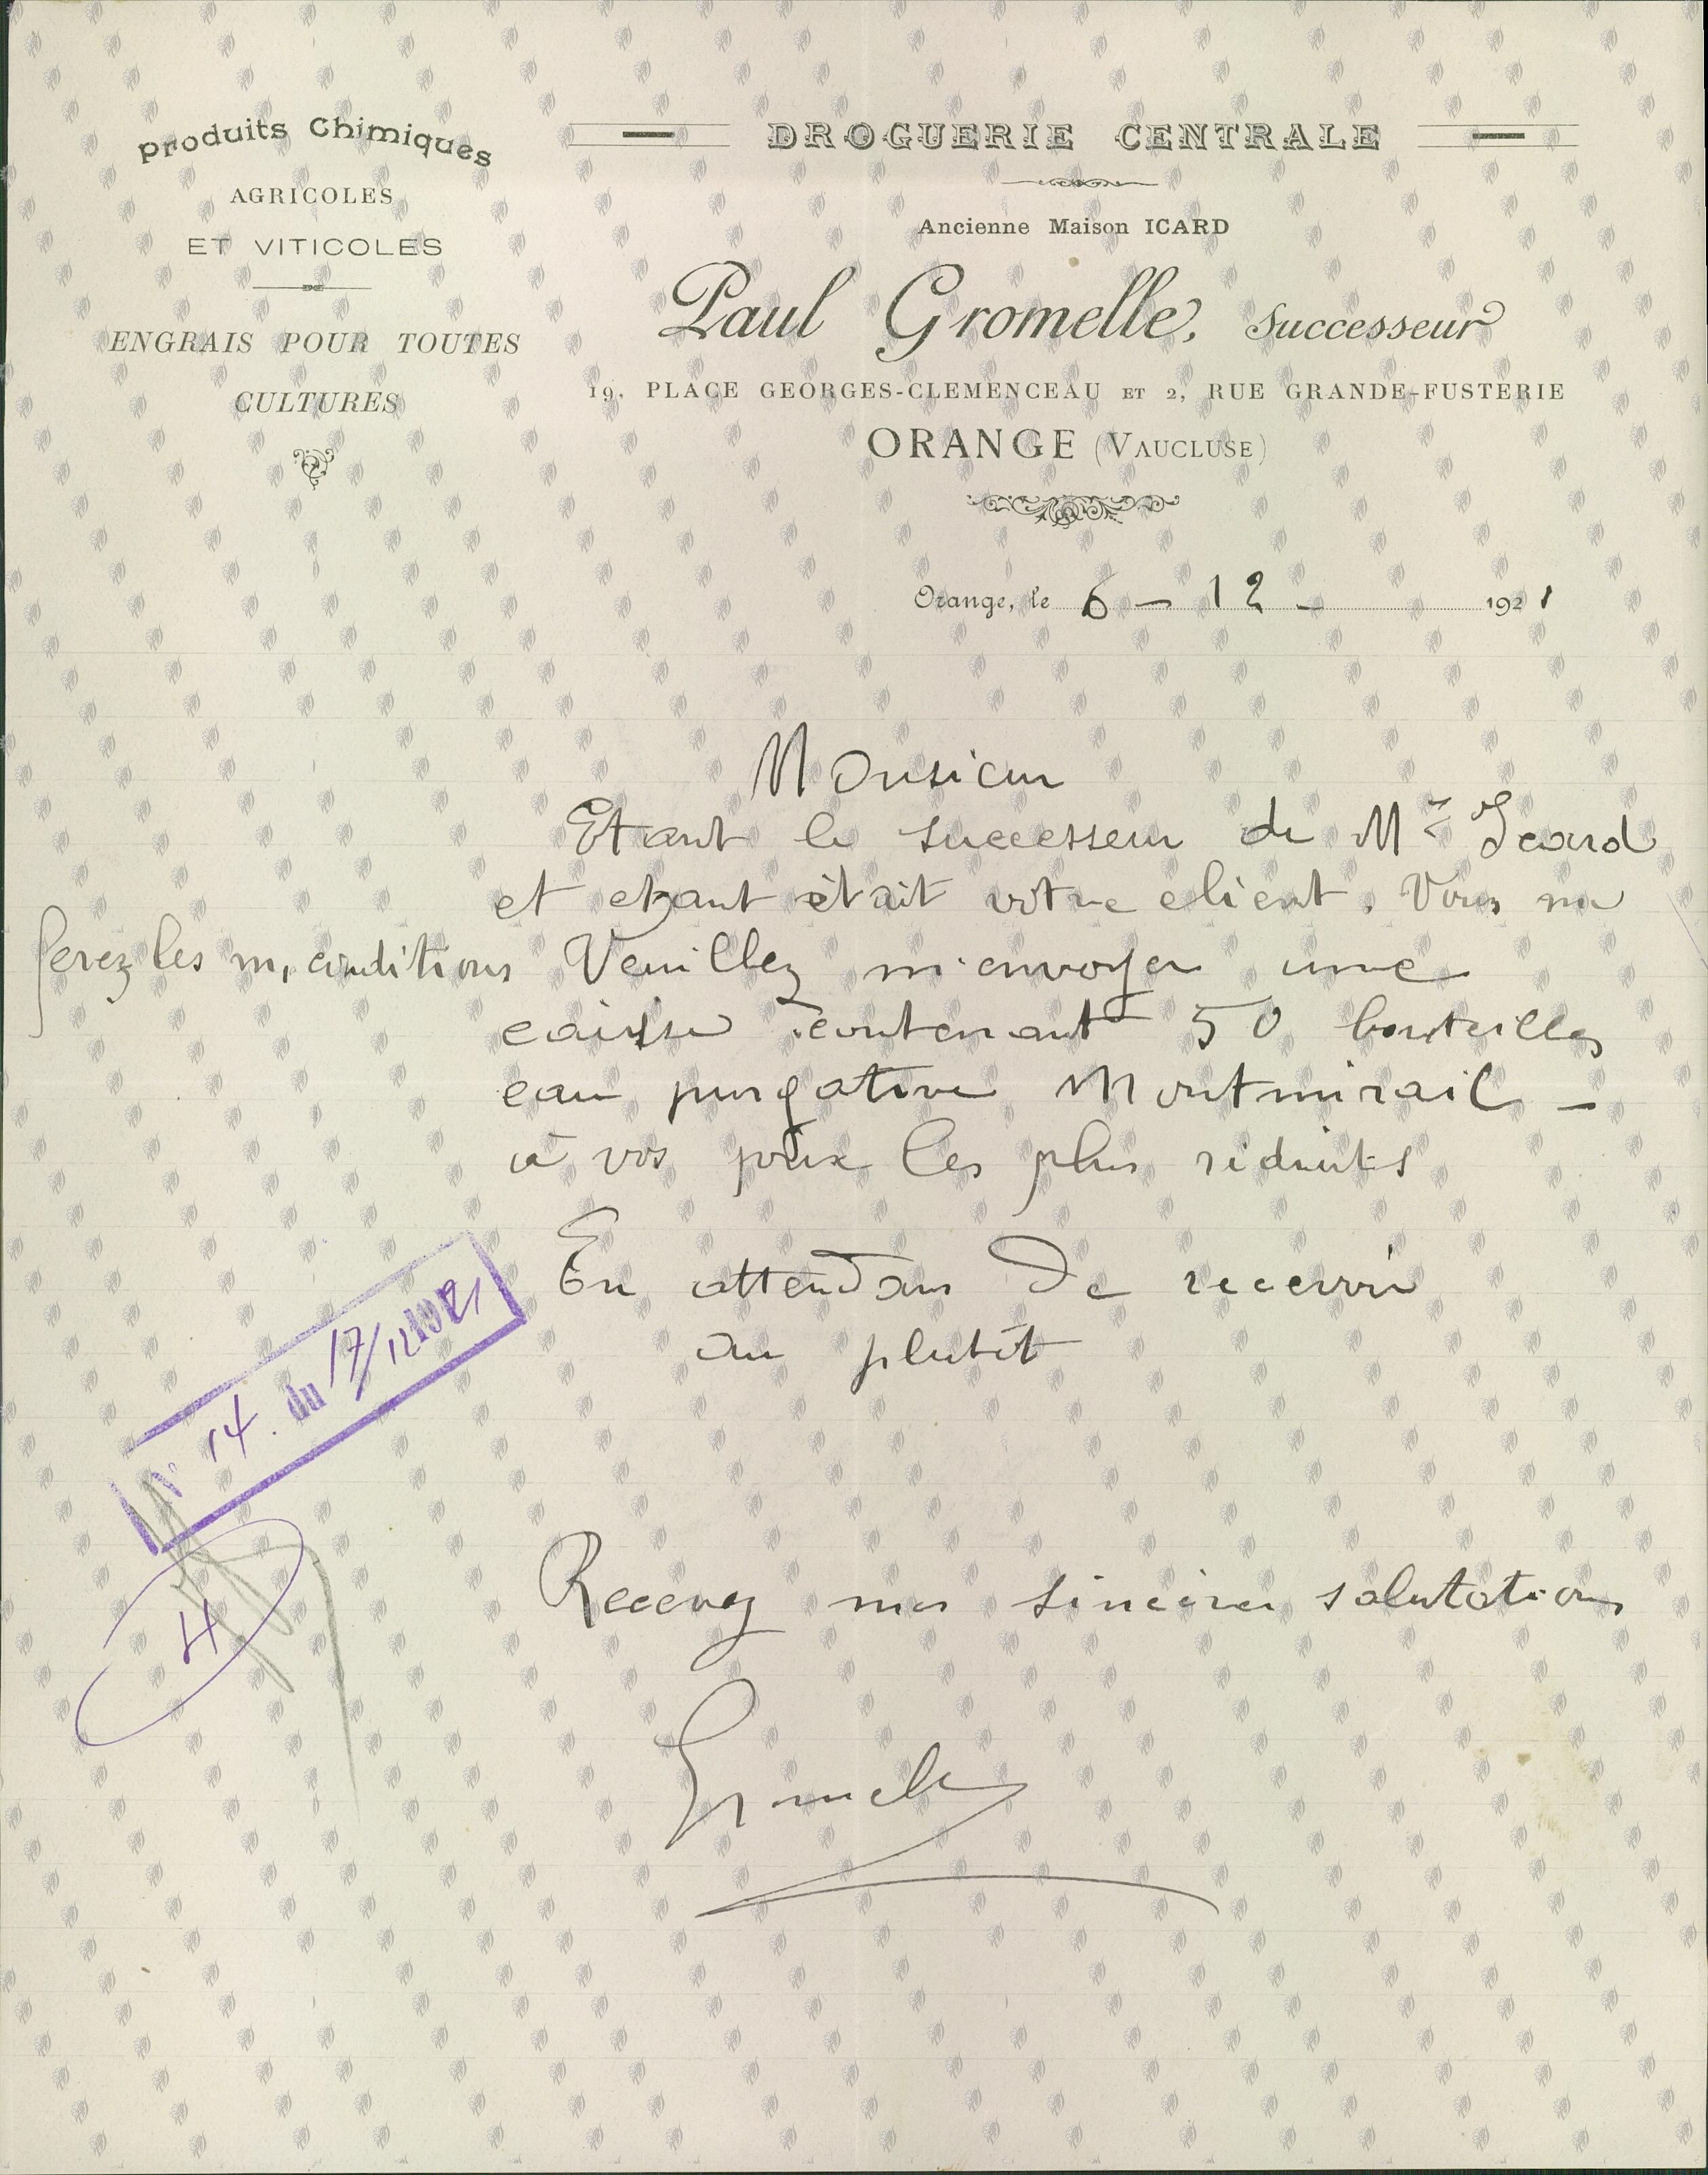 Produits Chimiques
AGRICOLES
ET VITICOLES
ENGRAIS POUR TOUTES
CULTURES
DROGUERIE CENTRALE
Ancienne Maison ICARD
Paul Gromelle, Successeur
19, PLACE GEORGES-CLEMENCEAU ET 2, RUE GRANDE-FUSTERIE
ORANGE (VAUCLUSE)
Orange, le 6 - 12 - 1921
Monsieur
Etant le successeur de Mr Icard
et etant était votre client. Vous me
ferez les m, conditions Veuillez m'envoyer une
caisse contenant 50 bouteilles
eau purgative Montmirail -
à vos prix les plus réduits
En attendans de recevoir
au plutôt
N° 14. du 17/12 1921
H
Recevez mes sincères salutations
Gromelle